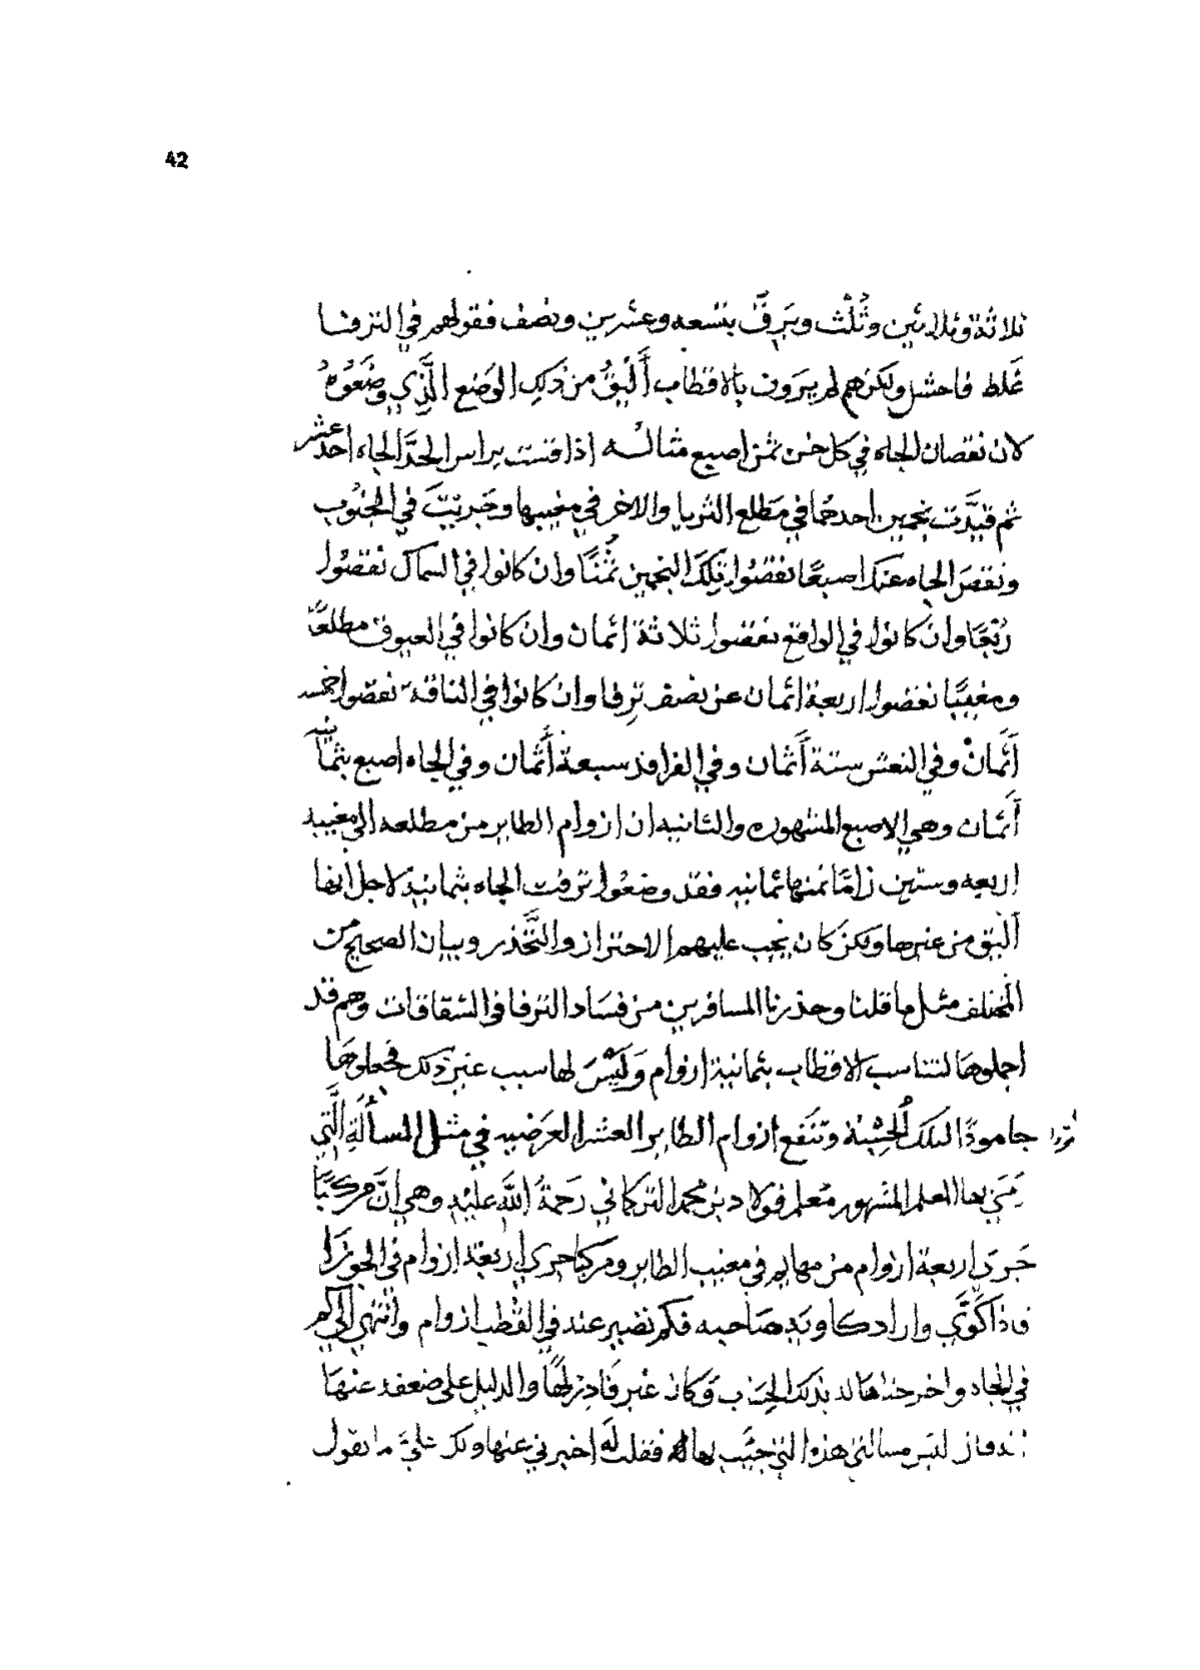 42
ثلاثة وثلاثين وثُلُث وبَرِفّ بتسعه وعشرين ونصف فقولهم في الترفا
غَلط فاحش ولكنهم لم يرون بالاقطاب أَلْيَقُ من ذَلِك الوَضع الَّذِي وضَعُوهُ
لان نقصان الجاه في كل خن ثمن اصبع مثالـه اذا قست براس الحدّ الجاه احد عشر
ثم قيَّدت نجمين احدهما في مَطلع الثريا والاخر في مغيبها وجَريْتَ في الجنُوب
ونقصَ الجاه عنك اصبعًا نقصُوا تِلكَ النجمين ثُمْنًا وان كانوا في السماك نقصُوا
رُبْعًا وان كانوا في الواقع نقصُوا ثلاثة اثمان وان كانوا في العيوق مطلعًا
ومغيبًا نقصُوا اربعة اثمان عن نصف تِرفا وان كانوا في الناقه نقصوا خمسه
أَثمَانْ وفي النعش ستة أَثمان وفي الفراقد سبعة أَثْمان وفي الجاه اصبع بثمانيه
أَثمان وهي الاصبع المشهوره والثانيه ان ازوام الطاير من مطلعه الى مغيبه
اربعه وستين زامًا ثمنها ثمانيه فقد وضعُوا ترفت الجاه بثمانيةِ لاجل انها
أَليَق من غيرها ولكن كان يجب عليهم الاحتراز والتَّحْذير وبيان الصحيح من
المختلف مثل ما قلنا وحذرنا المسافرين من فسَاد الترفا في الشقاقات وهم قد
اجملوها لتناسب الاقطاب بثمانية ازوام وَلَيْسَ لها سبب غير ذلك فجعلوهَا
جامودًا لتلك الحُسْبَة وتنفع ازوام الطاير العشر العرَضيه في مثل المسأَلةِ الَّتي
رَمَزَ بها المعلم المشهور مُعلم فولاد بن محمد التركاني رَحمَةُ اللَّهِ عليْهِ وهي انَّ مركبًا
جَرى اربعة ازوام من مهايم في مغيب الطاير ومركبا جرى اربعة ازوام في الجوزا
فاذا كُوَّتي واراد كاويه صَاحبه فكم تصير عنده في القُطب ازوام وانتهى الى كم
في الجاه واخرجناها له بذلك الحِسَاب وَكان غير قادِر لهَا والدليل على ضعفه عنهَا
انه قال ليس مسالتي هذه التي جئتَ بها له فقلت لَه اخبرني عنها ولك عليَّ ما تقول